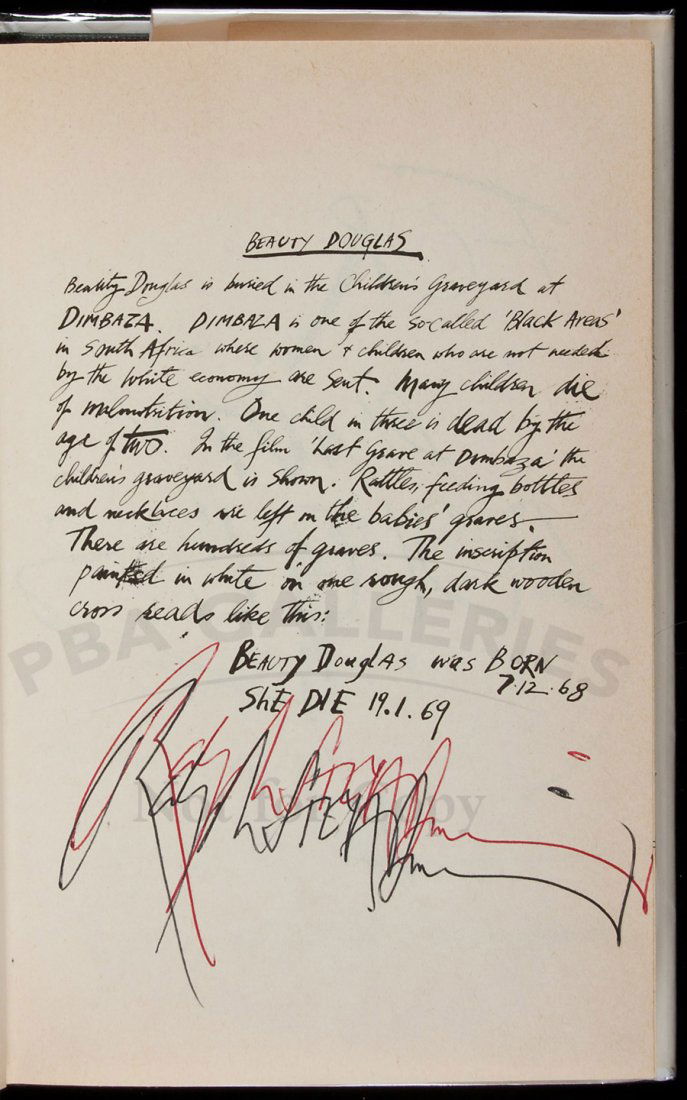 BEAUTY DOUGLAS
Beauty Douglas is buried in the Children's Graveyard at
DIMBAZA. DIMBAZA is one of the so called 'Black Areas'
in South Africa where women + children who are not needed
by the White economy are sent. Many children die
of malnutrition. One child in three is dead by the
age of TWO. In the film 'Last Grave at Dimbaza' the
children's graveyard is shown. Rattles, feeding bottles
and necklaces are left on the babies' graves.
There are hundreds of graves. The inscription
painted in white on one rough, dark wooden
cross reads like this:
BEAUTY DOUGLAS was BORN
7.12.68
SHE DIE 19.1.69
Ralph STEADman
PBA GALLERIES
Not for Copy